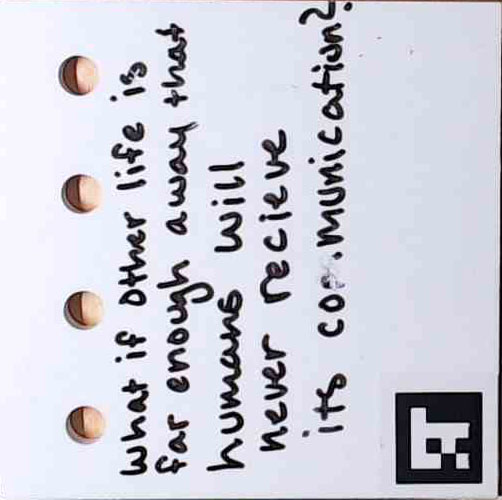 What if other life is
far enough away that
humans will
never recieve
its communication?